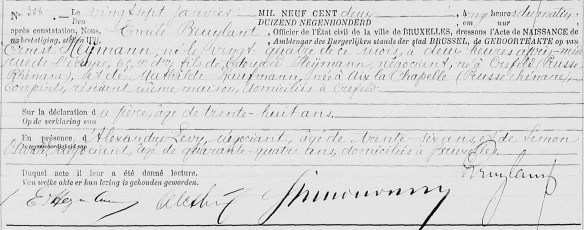 No 308 Le vingt sept janvier MIL NEUF CENT deux à onze heures du matin
Den DUIZEND NEGENHONDERD ten uur
après constatation, Nous, Emile Bruylant, Officier de l'État civil de la ville de BRUXELLES, dressons l'Acte de NAISSANCE de
Na bevestiging, stellen Wij Ambtenaar des Burgerlijken stands der stad BRUSSEL, de GEBOORTEAKTE op van
Ernest Heymann, né le vingt quatre de ce mois, à deux heures après-midi,
rue de 65, fils de Heymann, négociant, né à Crefeld (Prusse
Rhénane), et de Mathilde Kaufmann, née à Aix la Chapelle (Prusse rhénane),
conjoints, résidant même maison, domiciliés à Crefeld.
Sur la déclaration du père, âgé de trente-huit ans.
Op de verklaring van
En présence d'Alexandre Levy, négociant, âgé de ans, et de Simon
In bijwezen van
négociant, âgé de quarante-quatre ans, domiciliés à Bruxelles.
Duquel acte il leur a été donné lecture.
Van welke akte er hun lezing is gehouden geworden.
E. Heymann E Bruylant